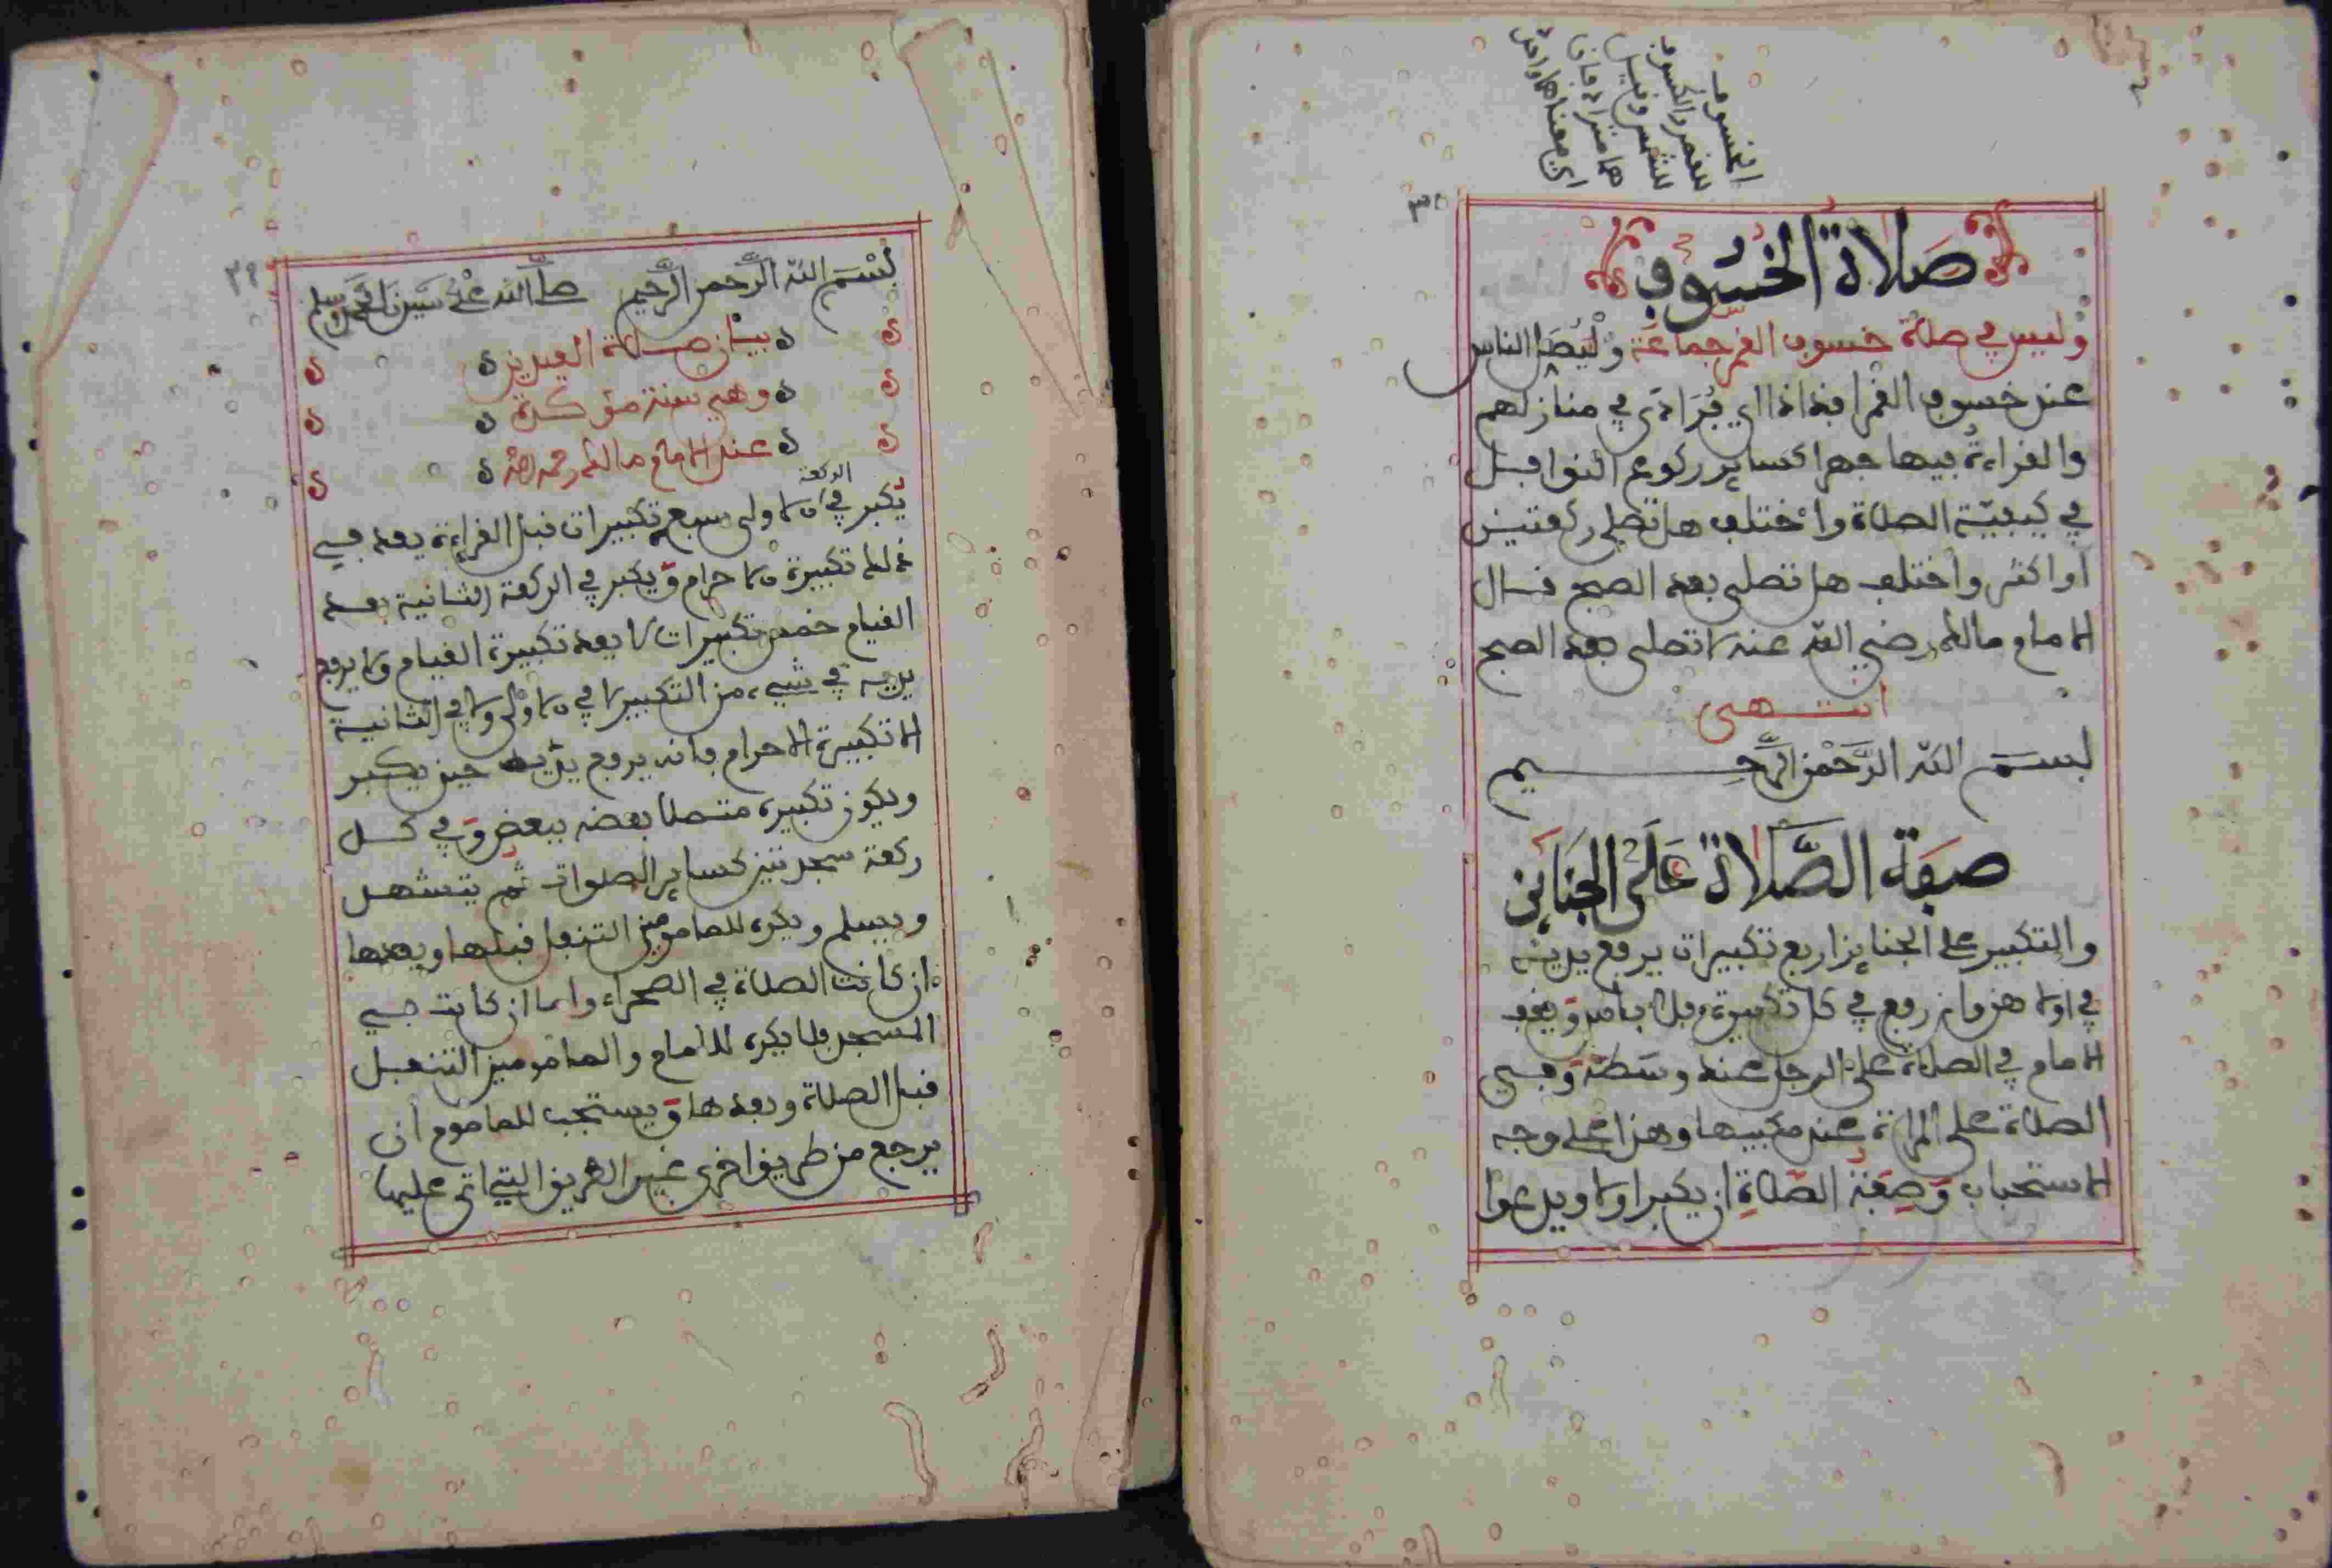 الخسوف
للقمر والكسوف
للشمس وقيل
هما مترادفان
اي معناهما واحد
٣٥
صَلاَةُ الخُسُوفِ
وليس في صلاة خسوف القمر جماعة وليُصَلِّ الناس
عند خسوف القمر افذاذا اي فُرَادَى في منازلهم
والقراءة فيها جهرا كسائر ركوع النوافل
في كيفيّة الصلاة واختلف هل تصلى ركعتين
او اكثر واختلف هل تصلى بعد الصبح فقال
الامام مالك رضي الله عنه لا تصلى بعد الصبح
انتهى
بسم الله الرَّحْمن الرَّحِيم
صفة الصَّلاَةِ عَلَى الجَنَائِز
والتكبير على الجنائز اربع تكبيرات يرفع يديه
في اولاهن وان رفع في كل تكبيرة فلا باس ويقف
الامام في الصلاة على الرجل عند وسَطه وفي
الصلاة على المراة عند منكبيها وهذا على وجه
الاستحباب وَصِفَة الصّلاةِ ان يكبر اولا ويدعوا
بسم الله الرَّحمن الرَّحيم صلى الله على سيدنا محمد وسلم
بيان صلاة العيدين
وهي سنة مؤكدة
عند الامام مالك رحمه الله
الركعة
يُكبر في الاولى سبع تكبيرات قبل القراءة يعد في
ذلك تكبيرة الاحرام ويكبر في الركعة الثانية بعد
القيام خمس تكبيرات لا يعد تكبيرة القيام ولا يرفع
يديه في شيء من التكبير لا في الاولى ولا في الثانية
الا تكبيرة الاحرام فانه يرفع يديه حين يكبر
ويكون تكبيره متصلا بعضه ببعض وفي كل
ركعة سجدتين كسائر الصلوات ثم يتشهد
ويسلم ويكره للمامومين التنفل قبلها وبعدها
ان كانت الصلاة في الصحراء واما ان كانت في
المسجد فلا يكره للامام والمامومين التنفل
قبل الصلاة وبعدها ويستحب للماموم ان
يرجع من طريق اخرى غير الطريق التي اتى عليها